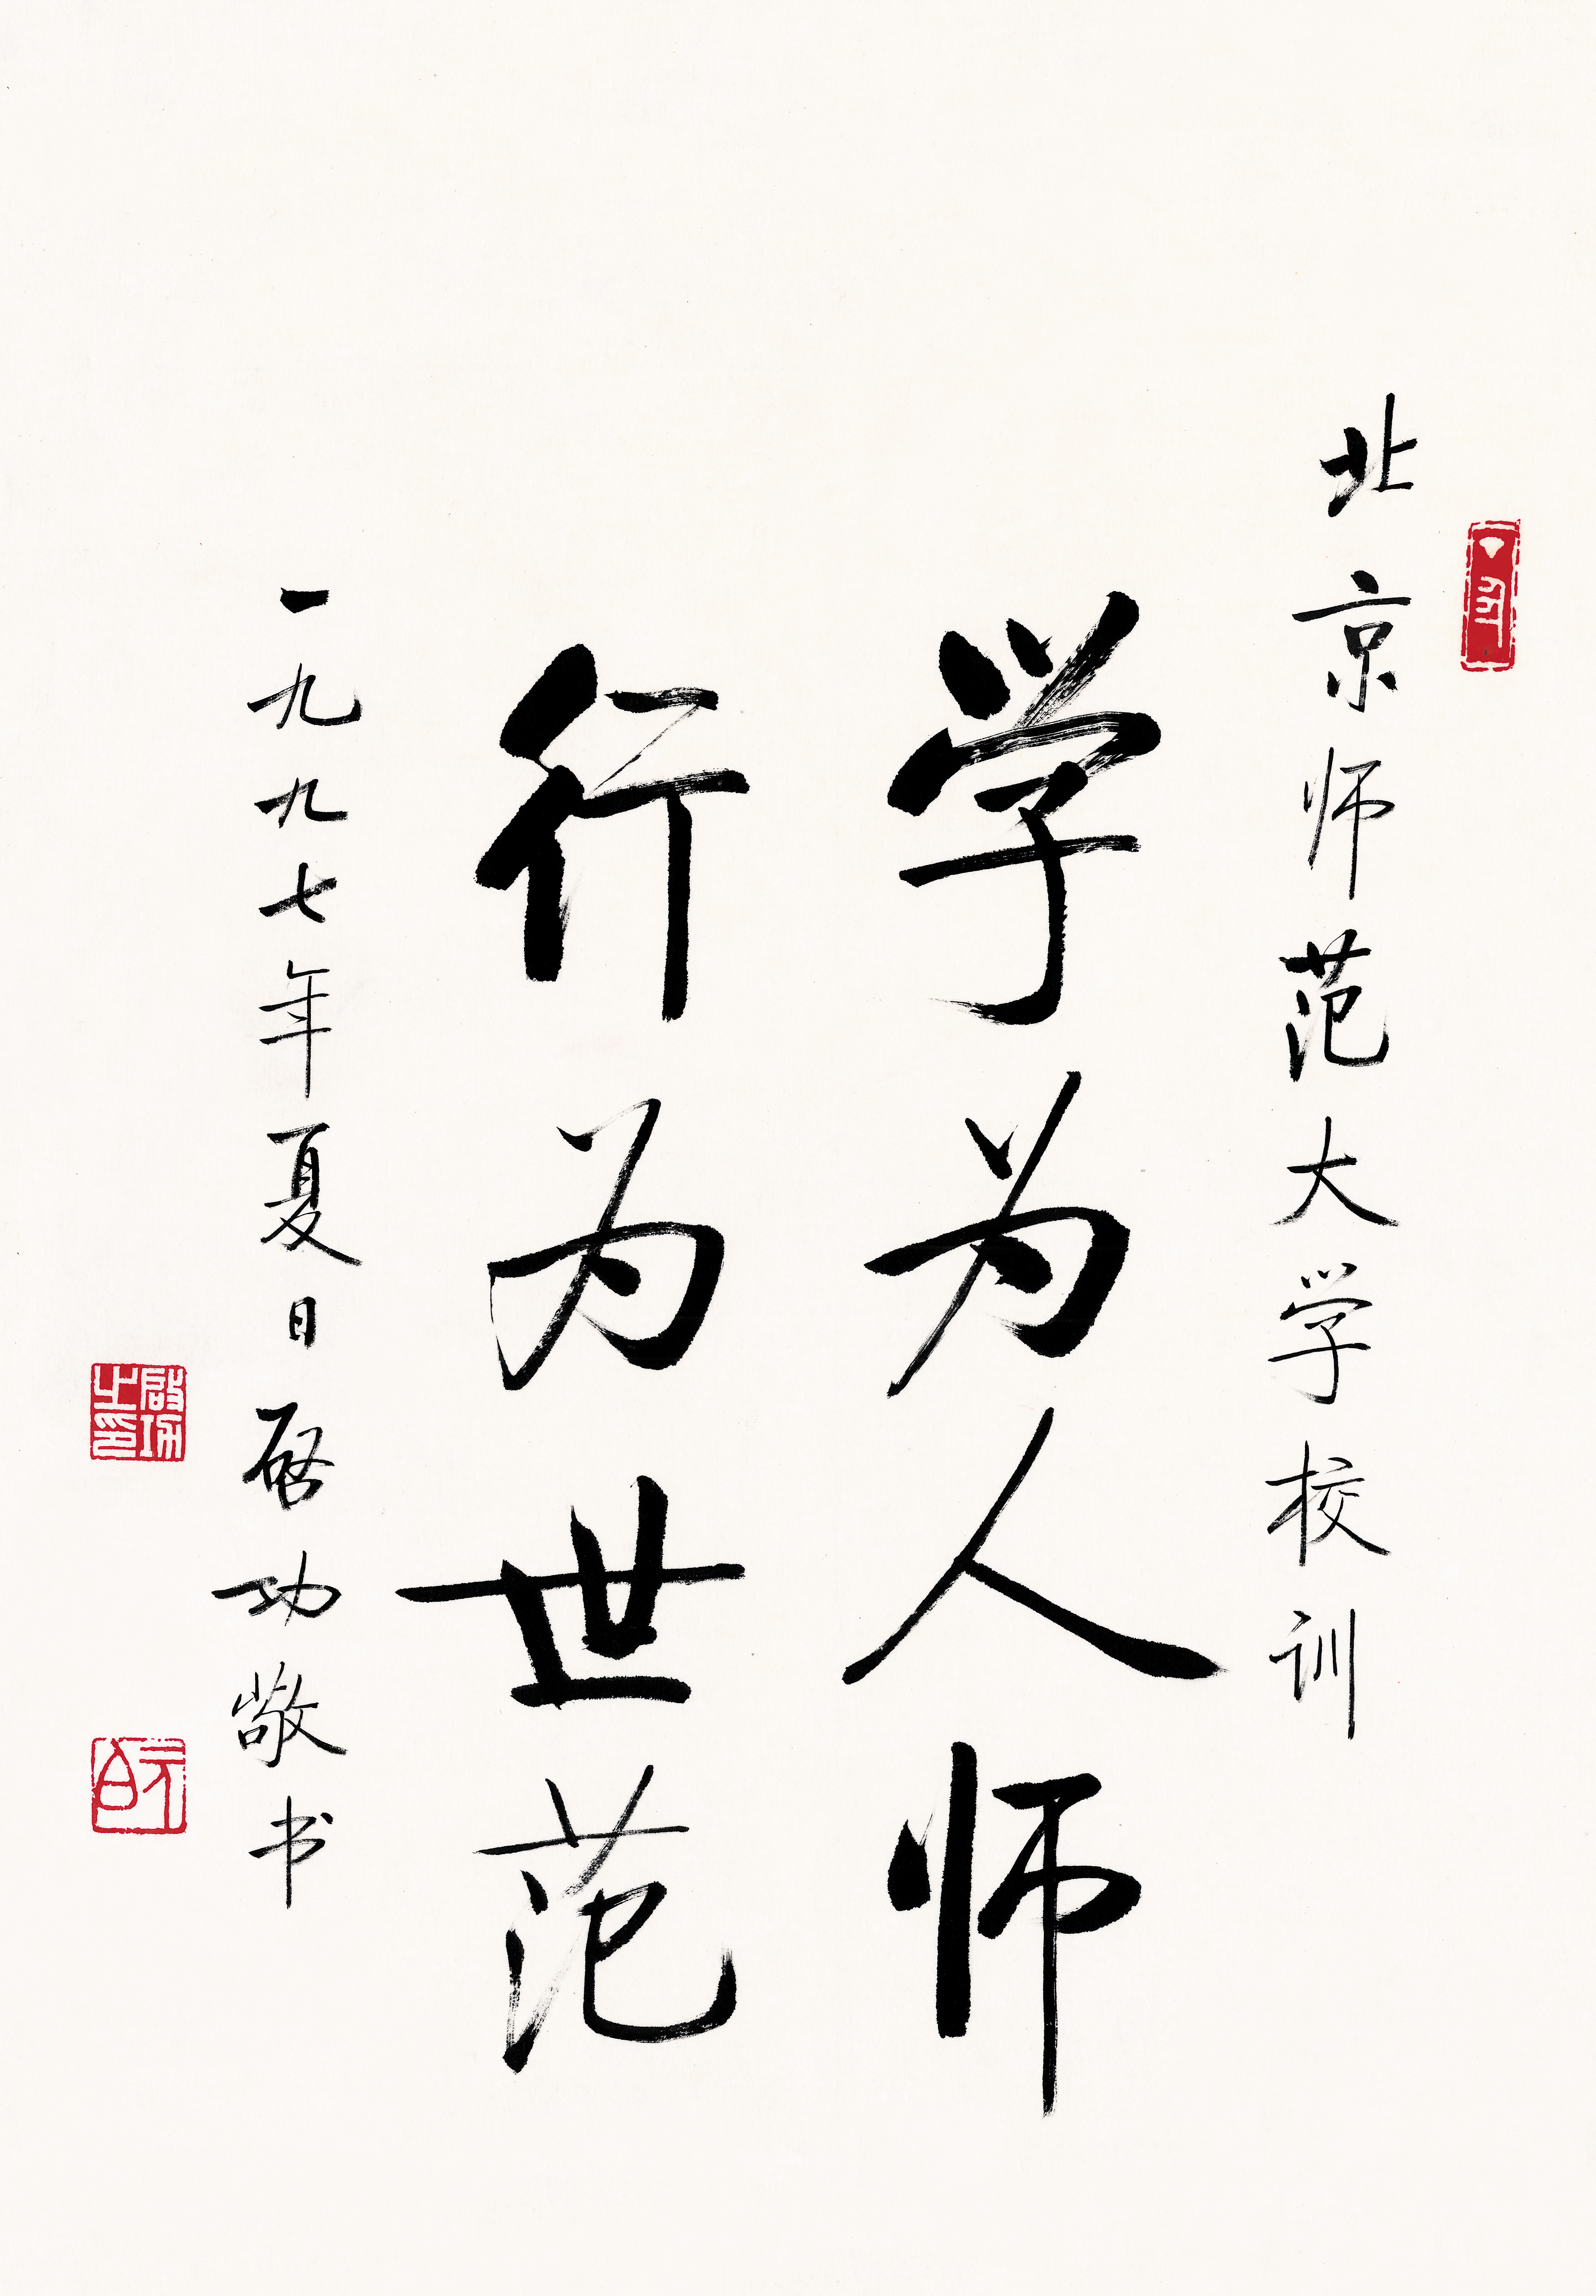 北京师范大学校训
学为人师
行为世范
一九九七年夏日启功敬书
啟功之印
元白